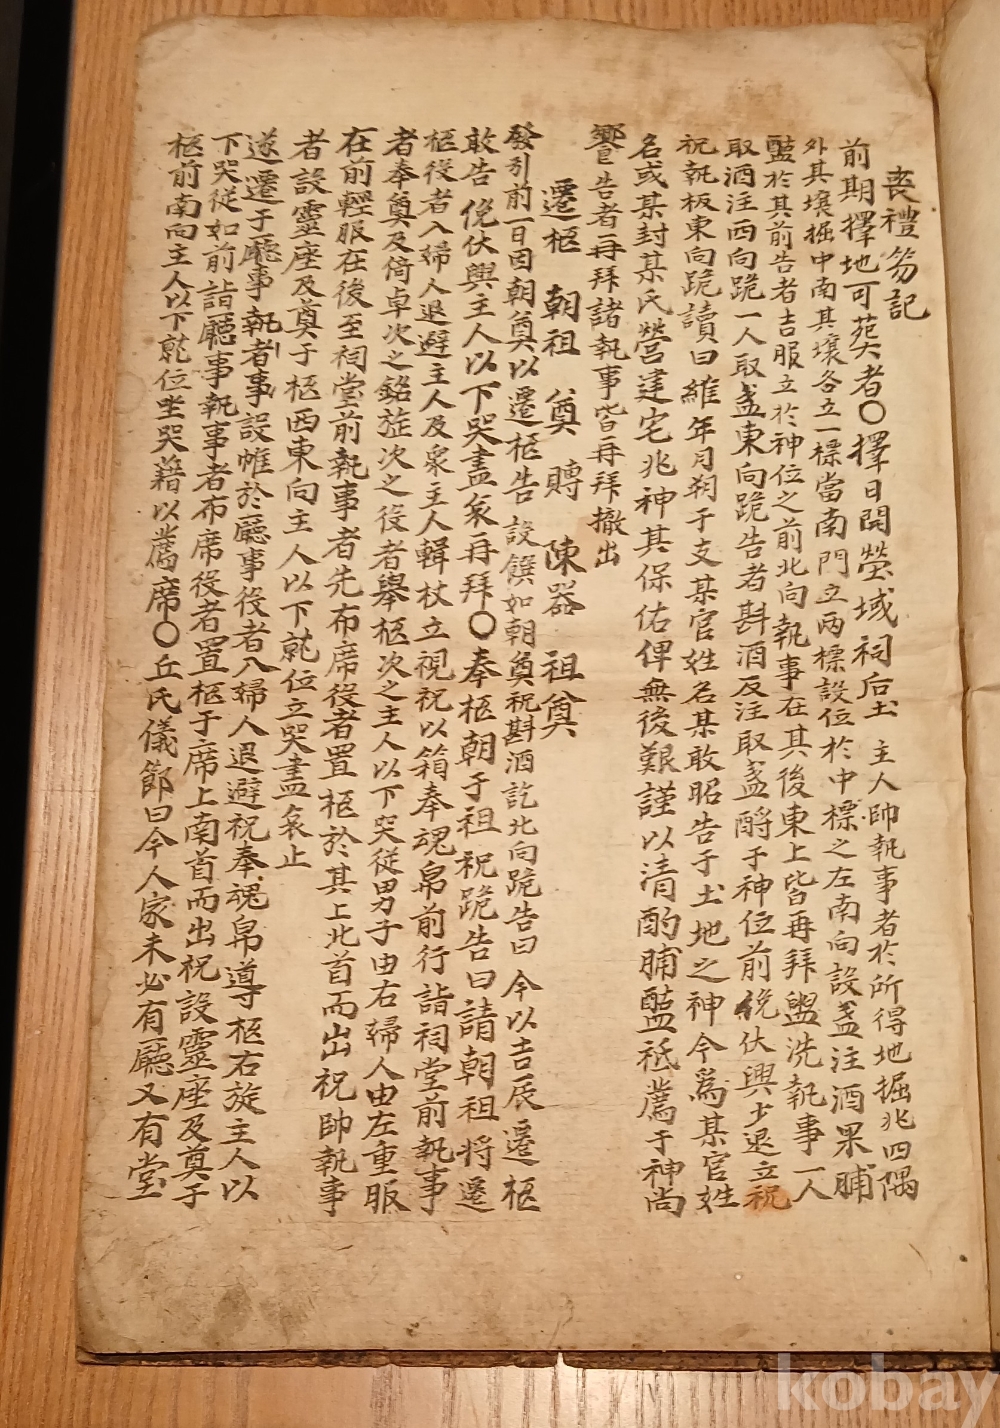 喪禮笏記
前期擇地可葬者〇擇日開塋域祠后土 主人帥執事者於所得地掘兆四隅
外其壤掘中南其壤各立一標當南門立兩標設位於中標之左南向設盞注酒果脯
醢於其前告者吉服立於神位之前北向執事在其後東上皆再拜盥洗執事一人
取酒注西向跪一人取盞東向跪告者斟酒反注取盞酹于神位前俛伏興少退立祝
祝執板東向跪讀曰維年月朔干支某官姓名某敢昭告于土地之神今爲某官姓
名或某封某氏營建宅兆神其保佑俾無後艱謹以清酌脯醢祗薦于神尚
饗告者再拜諸執事皆再拜撤出
遷柩 朝祖 奠 賻 陳器 祖奠
發引前一日因朝奠以遷柩告 設饌如朝奠祝斟酒訖北向跪告曰 今以吉辰遷柩
敢告俛伏興主人以下哭盡哀再拜〇奉柩朝于祖祝跪告曰請朝祖将遷
柩役者入婦人退避主人及衆主人輯杖立視祝以箱奉魂帛前行詣祠堂前執事
者奉奠及倚卓次之銘旌次之役者舉柩次之主人以下哭從男子由右婦人由左重服
在前輕服在後至祠堂前執事者先布席役者置柩於其上北首而出祝帥執事
者設靈座及奠于柩西東向主人以下就位立哭盡哀止
遂遷于廳事執者事設帷於廳事役者入婦人退避祝奉魂帛導柩右旋主人以
下哭從如前詣廳事執事者布席役者置柩于席上南首而出祝設靈座及奠于
柩前南向主人以下就位坐哭藉以薦席〇丘氏儀節曰今人家未必有廳又有堂
kobay